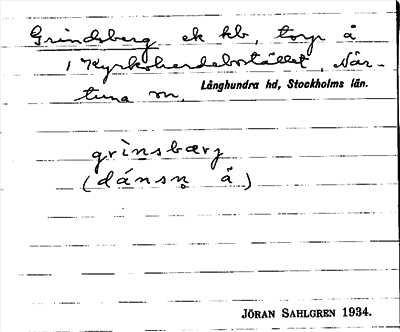 Grindsberg ek kb, torp å
/ Kyrkoherdebostället, När-
tuna sn, Långhundra hd, Stockholms län.
grìnsbærj
(dánsn̥ å)
JÖRAN SAHLGREN 1934.